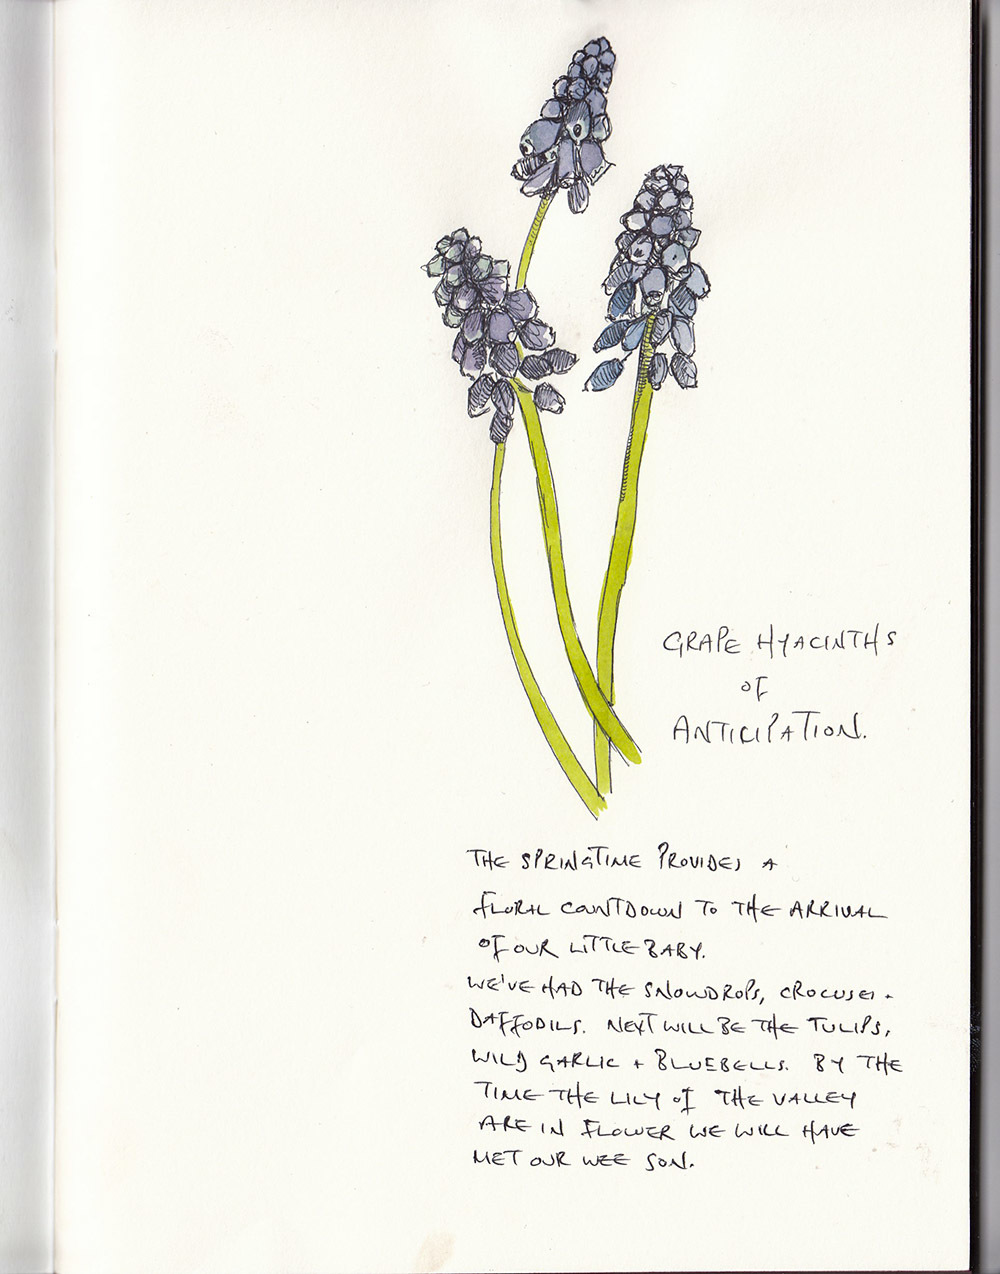 GRAPE HYACINTHS
OF
ANTICIPATION.
THE SPRINGTIME PROVIDES A
FLORAL COUNTDOWN TO THE ARRIVAL
OF OUR LITTLE BABY.
WE'VE HAD THE SNOWDROPS, CROCUSES +
DAFFODILS. NEXT WILL BE THE TULIPS,
WILD GARLIC + BLUEBELLS. BY THE
TIME THE LILY OF THE VALLEY
ARE IN FLOWER WE WILL HAVE
MET OUR WEE SON.